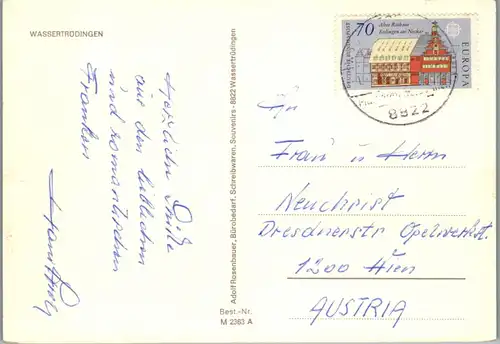 WASSERTRÜDINGEN
Herzliche Grüße
aus dem lieblichen
und romantischen
Franken
Adolf Rosenbauer, Bürobedarf, Schreibwaren, Souvenirs · 8822 Wassertrüdingen
Best.-Nr.
M 2363 A
70
Altes Rathaus
Esslingen am Neckar
DEUTSCHE BUNDESPOST
EUROPA
8822
An
Frau u Herrn
Neuchrist
Dresdnerstr
1200 Wien
AUSTRIA